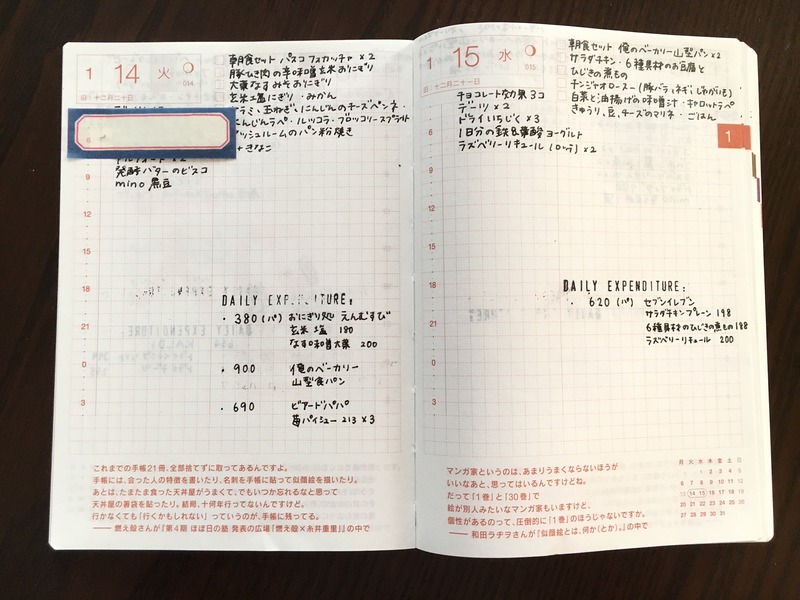 1 14 火
014
旧:十二月二十日
朝食セット パスコ フォカッチャ ×2
豚ひき肉の辛味噌玄米おにぎり
大葉なすみそおにぎり
玄米塩にぎり・みかん
ラミ、玉ねぎ、にんじんのチーズペンネ・
にんじんラペ・ルッコラ・ブロッコリースプラウト
ッシュルームのパン粉焼き
+きなこ
×2
発酵バターのビスコ
mino 黒豆
6
9
12
15
18
21
0
3
DAILY EXPENDITURE:
・380(パ) おにぎり処 えんむすび
玄米塩 180
なす味噌大葉 200
・900 俺のベーカリー
山型食パン
・690 ビアードパパ
苺パイシュー 213×3
これまでの手帳21冊、全部捨てずに取ってあるんですよ。
手帳には、会った人の特徴を書いたり、名刺を手帳に貼って似顔絵を描いたり。
あとは、たまたま食った天丼屋がうまくて、でもいつか忘れるなと思って
天丼屋の箸袋を貼ったり。結局、十何年行ってないんですけど。
行かなくても「行くかもしれない」っていうのが、手帳に残ってる。
—— 燃え殻さんが『第4期 ほぼ日の塾 発表の広場「燃え殻×糸井重里」』の中で
1 15 水
015
旧:十二月二十一日
朝食セット 俺のベーカリー山型パン×2
サラダチキン・6種具材のお豆腐と
ひじきの煮もの
チンジャオロースー(豚バラ、ネギ、じゃがいも)
白菜と油揚げの味噌汁・キャロットラペ
きゅうり、豆、チーズのマリネ・ごはん
チョコレート効果 3コ
デーツ ×2
ドライいちじく ×3
1日分の鉄&葉酸ヨーグルト
ラズベリーリキュール(ロッテ)×2
1
6
9
12
15
18
21
0
3
DAILY EXPENDITURE:
・620(パ) セブンイレブン
サラダチキンプレーン 198
6種具材のひじきの煮もの 188
ラズベリーリキュール 200
マンガ家というのは、あまりうまくならないほうが
いいなあと、思ってはいるんですけどね。
だって「1巻」と「30巻」で
絵が別人みたいなマンガ家もいますけど、
個性があるのって、圧倒的に「1巻」のほうじゃないですか。
—— 和田ラヂヲさんが『似顔絵とは、何か(とか)。』の中で
月 火 水 木 金 土 日
1 2 3 4 5
6 7 8 9 10 11 12
13 14 15 16 17 18 19
20 21 22 23 24 25 26
27 28 29 30 31